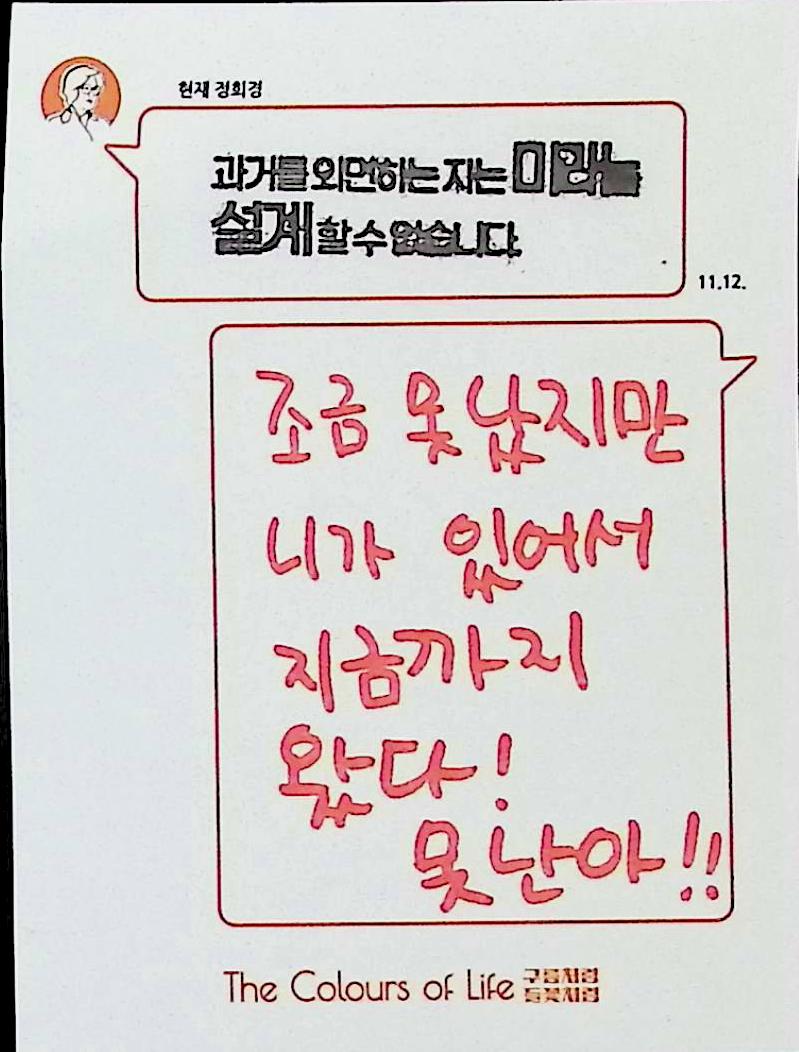 현재 정희경
과거를 외면하는 자는 미래를
설계할 수 없습니다.
11.12.
조금 못났지만
니가 있어서
지금까지
왔다!
못난아!!
The Colours of Life 구름처럼
들꽃처럼